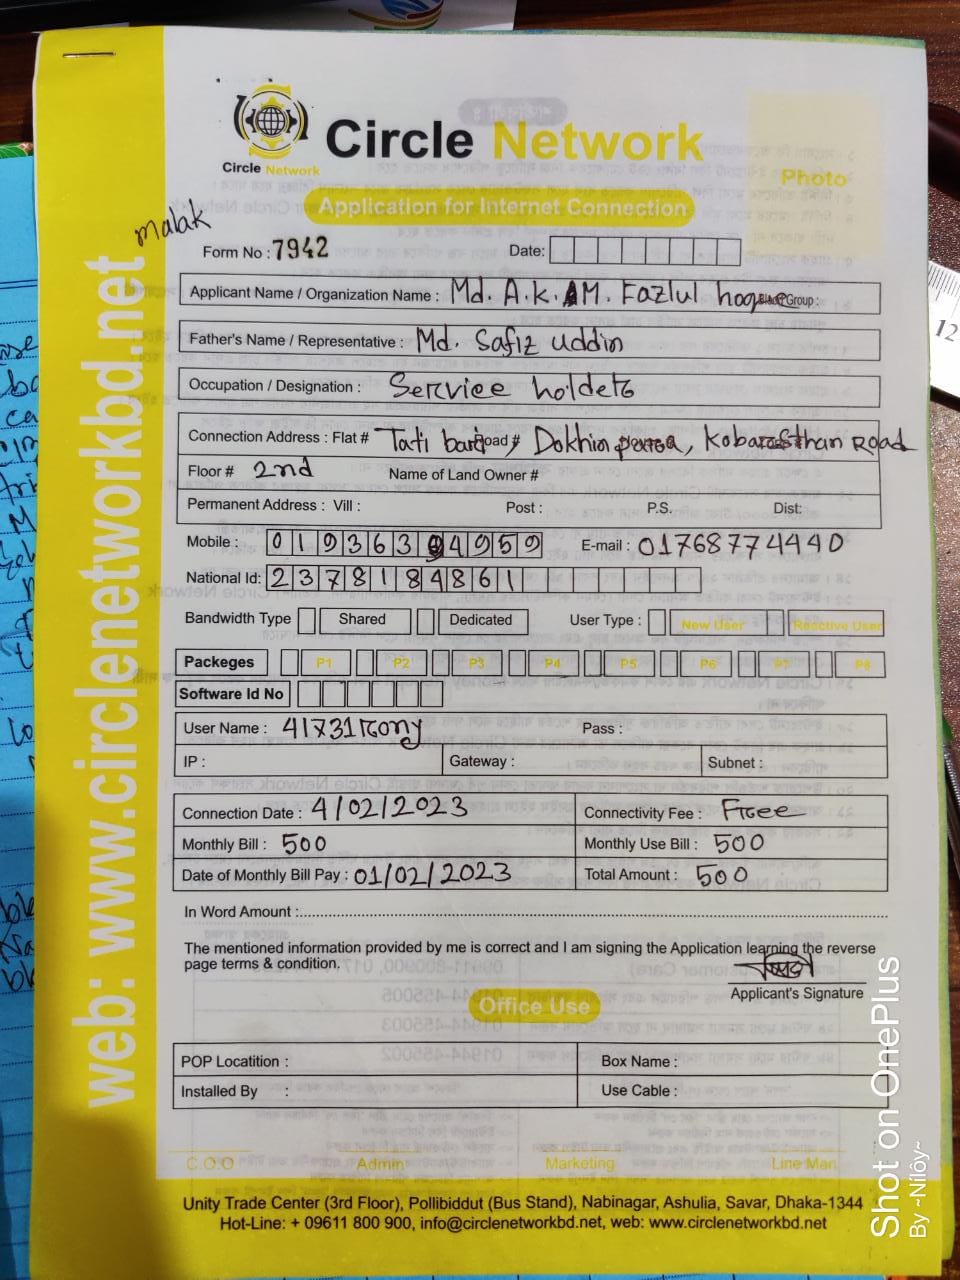 Circle Network
Circle Network
Photo
Application for Internet Connection
malak
Form No : 7942
Date:
Applicant Name / Organization Name : Md. A.K.M. Fazlul hoque Blood Group :
Father's Name / Representative : Md. Safiz uddin
Occupation / Designation : Service holders
Connection Address : Flat # Tati bari Road # Dokhin parsa, Kobarasthan Road
Floor # 2nd Name of Land Owner #
Permanent Address : Vill : Post : P.S. Dist:
Mobile : 01936394959 E-mail : 01768774440
National Id: 2378184861
Bandwidth Type Shared Dedicated User Type : New User Reactive User
Packeges P1 P2 P3 P4 P5 P6 P7 P8
Software Id No
User Name : 41731rony Pass :
IP : Gateway : Subnet :
Connection Date : 4/02/2023 Connectivity Fee : Free
Monthly Bill : 500 Monthly Use Bill : 500
Date of Monthly Bill Pay : 01/02/2023 Total Amount : 500
In Word Amount :
The mentioned information provided by me is correct and I am signing the Application learning the reverse
page terms & condition.
Applicant's Signature
Office Use
POP Locatition : Box Name :
Installed By : Use Cable :
C.O.O Admin Marketing Line Man
Unity Trade Center (3rd Floor), Pollibiddut (Bus Stand), Nabinagar, Ashulia, Savar, Dhaka-1344
Hot-Line: + 09611 800 900, info@circlenetworkbd.net, web: www.circlenetworkbd.net
web: www.circlenetworkbd.net
12
Shot on OnePlus
By ~Nilôy~